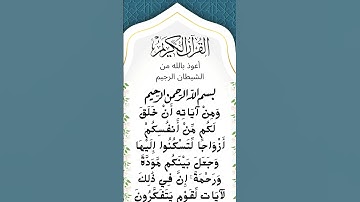 القرآن الكريم
أعوذ بالله من
الشيطان الرجيم
بسم الله الرحمن الرحيم
وَمِنْ آيَاتِهِ أَنْ خَلَقَ
لَكُم مِّنْ أَنفُسِكُمْ
أَزْوَاجًا لِّتَسْكُنُوا إِلَيْهَا
وَجَعَلَ بَيْنَكُم مَّوَدَّةً
وَرَحْمَةً ۚ إِنَّ فِي ذَٰلِكَ
لَآيَاتٍ لِّقَوْمٍ يَتَفَكَّرُونَ